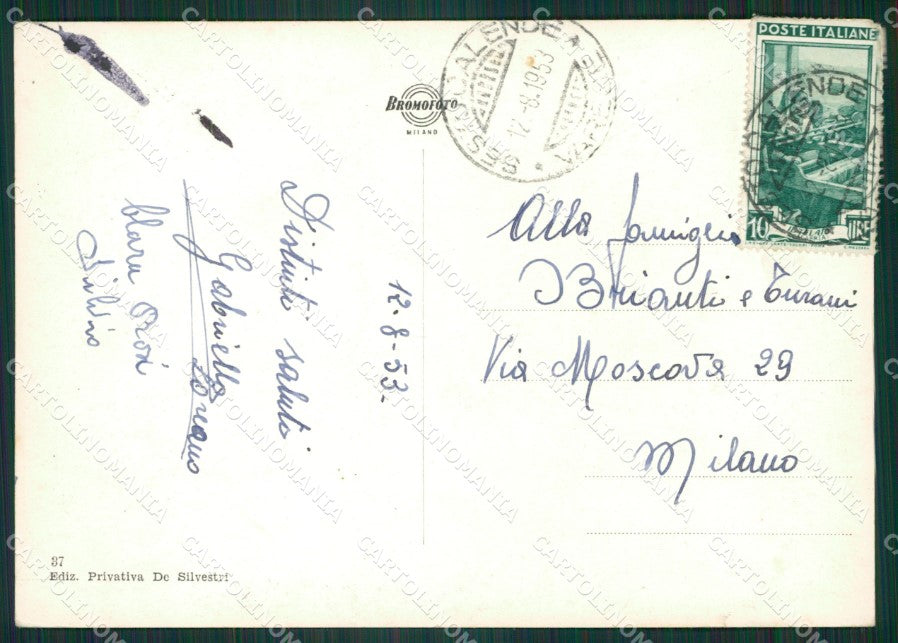 BROMOFOTO
MILANO
SESTO CALENDE *
12-8.1953
POSTE ITALIANE
10 LIRE
12-8-53-
Distinti saluti
Gabriella
Clara
Silvio
Alla famiglia
Brianti e Turani
Via Moscova 29
Milano
37
Ediz. Privativa De Silvestri
CARTOLINOMANIA